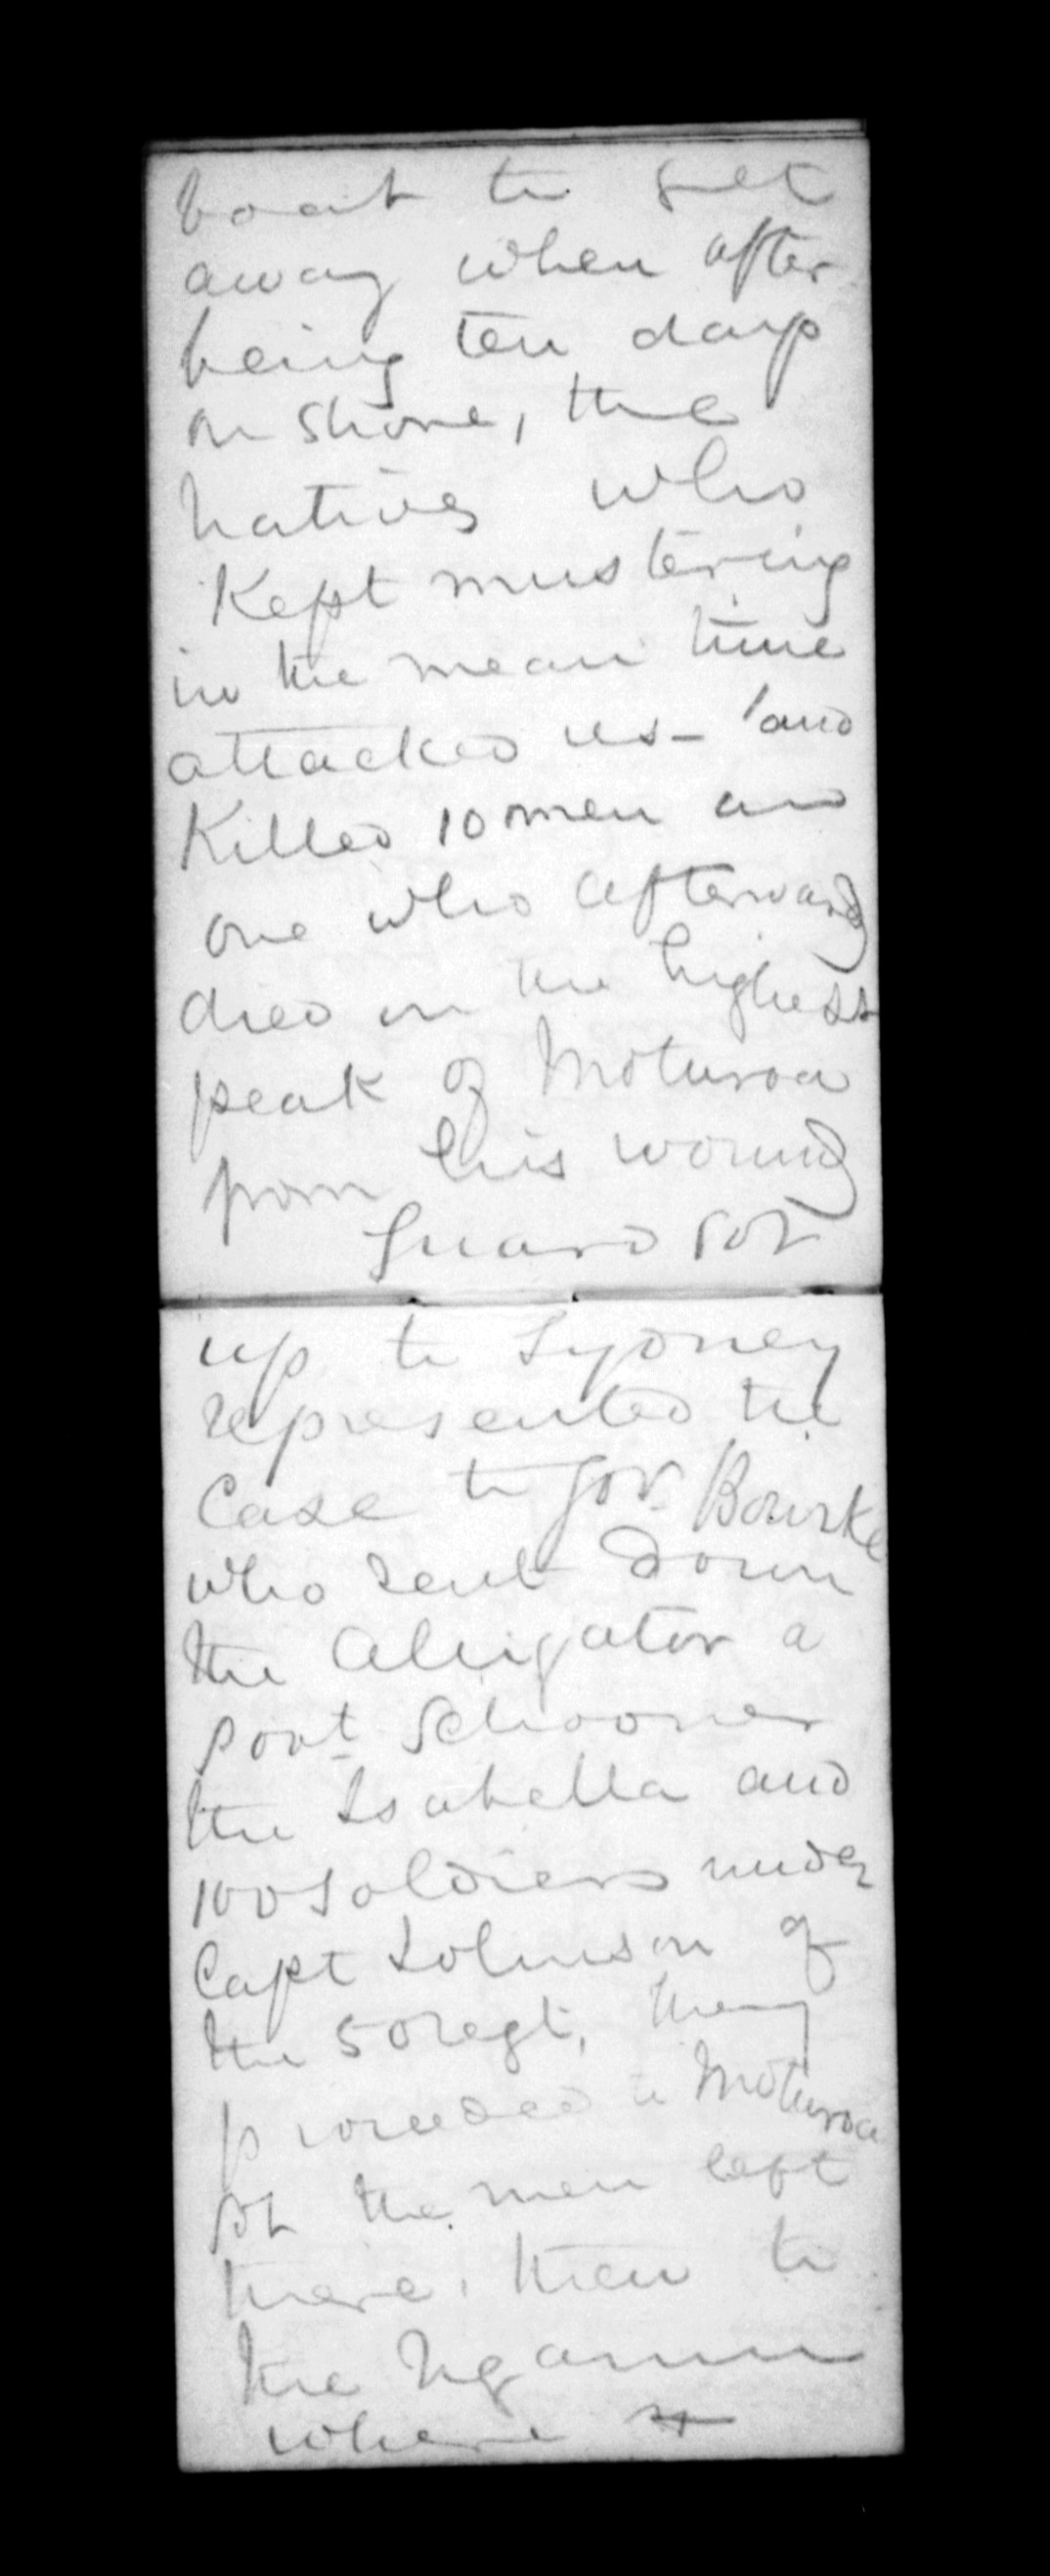 boat to get
away when after
being ten days
on shore, the
natives who
Kept mustering
in the mean time
attacked us - and
Killed 10 men and
one who afterwards
died on the highest
peak of Moturoa
from his wounds
Guard got
up to Sydney
represented the
Case to Gov. Bourke
who sent down
the Alligator a
Govt Schooner
the Isabella and
100 soldiers under
Capt Johnson of
the 50 regt, they
proceeded to Moturoa
got the men left
there, then to
the Ngamu
where